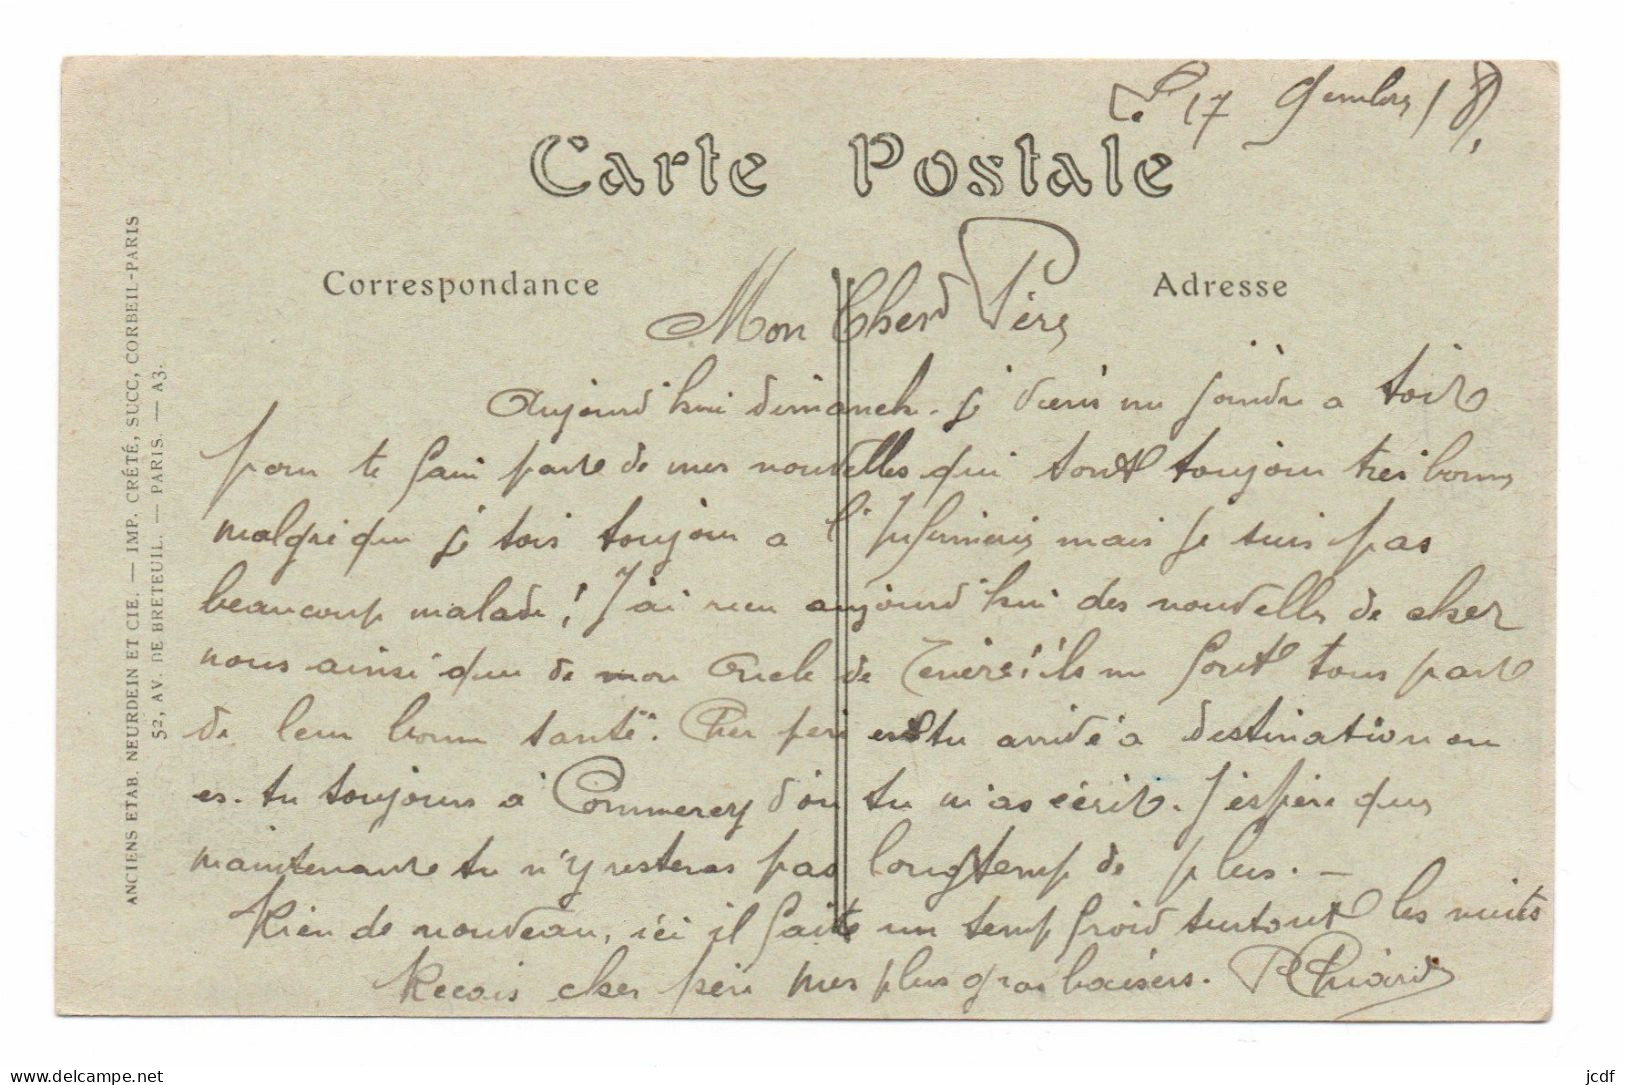 Le 17 9embre 18,
Carte Postale
Correspondance
Adresse
Mon Cher Père
Aujourd'hui dimanche. je viens me joindre a toit
pour te fair part de mes nouvelles qui sont toujour tres bonne
malgré que je sois toujour a l'Infirmerie mais je suis pas
beaucoup malade! J'ai reçu aujourd'hui des nouvelle de chez
nous ainsi que de mon Oncle de ils me font tous part
de leur bonne santé. Cher père es tu arrivé à destination ou
es-tu toujours à Commercy d'où tu m'as écrit. J'espère que
maintenant tu n'y resteras pas longtemp de plus. —
Rien de nouveau, ici il fait un temp froid surtout les nuits
Recois cher père mes plus gros baisers.
ANCIENS ETAB. NEURDEIN ET CIE. — IMP. CRÉTÉ, SUCC, CORBEIL-PARIS
52, AV. DE BRETEUIL. — PARIS. — A3.
https://www.delcampe.net
jcdf